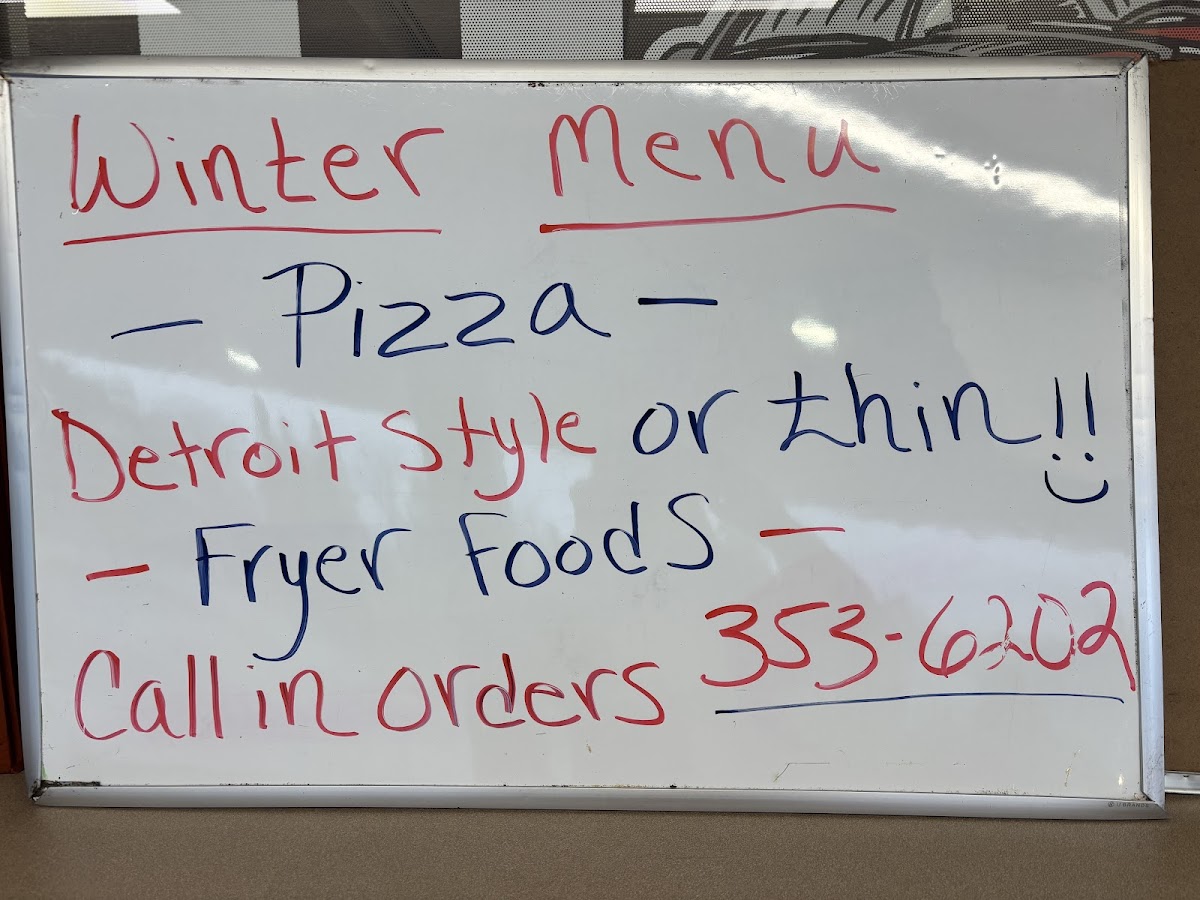 Winter Menu
- Pizza -
Detroit Style or thin!!
- Fryer Foods -
Call in orders 353-6202